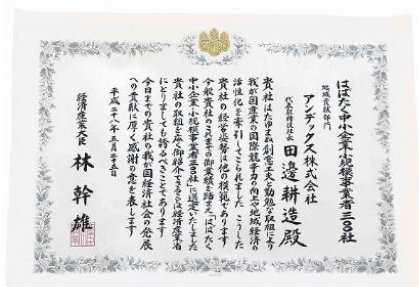 はばたく中小企業・小規模事業者三〇〇社
地域貢献部門
アンデックス株式会社
代表取締役社長
田邊耕造殿
貴社はたゆまぬ創意工夫と勤勉な取組により
我が国産業の国際競争力の向上や地域経済の
活性化を牽引してこられました こうした
貴社の経営姿勢は他の模範であります
今般貴社のこれまでの御業績を踏まえ「はばたく
中小企業・小規模事業者三〇〇社」に選定いたしました
貴社の取組を広く御紹介できることは経済産業省
にとりましても誇るべきことであります
今日までの貴社の我が国経済社会の発展
への貢献に厚く感謝の意を表します
平成二十八年五月二十三日
経済産業大臣
林幹雄